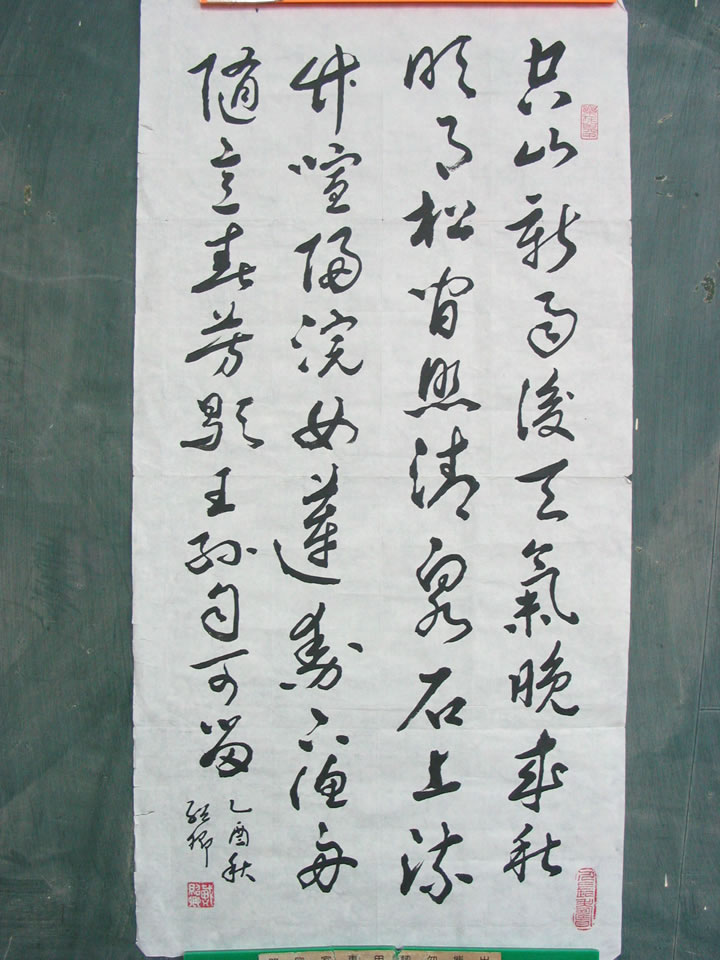 空山新雨後天氣晚来秋
明月松間照清泉石上流
竹喧歸浣女蓮動下漁舟
隨意春芳歇王孫自可留
乙酉秋